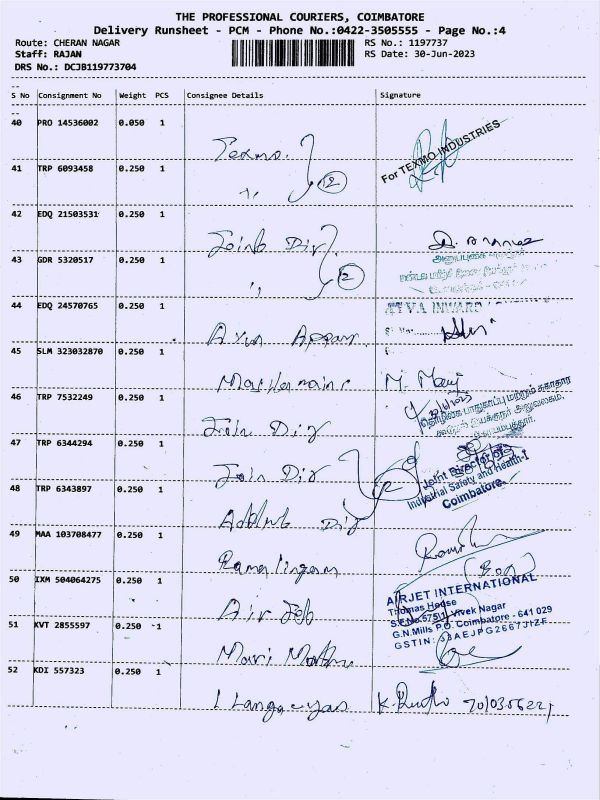 THE PROFESSIONAL COURIERS, COIMBATORE
Delivery Runsheet - PCM - Phone No.:0422-3505555 - Page No.:4
Route: CHERAN NAGAR
RS No.: 1197737
Staff: RAJAN
RS Date: 30-Jun-2023
DRS No.: DCJB119773704
S No Consignment No Weight PCS Consignee Details Signature
40 PRO 14536002 0.050 1
Texmo.
For TEXMO INDUSTRIES
41 TRP 6093458 0.250 1
,, 12
42 EDQ 21503531 0.250 1
Joint Dir
43 GDR 5320517 0.250 1
,, 2
44 EDQ 24570765 0.250 1
Arun Appan
45 SLM 323032870 0.250 1
M. Mani
46 TRP 7532249 0.250 1
Join Dir
47 TRP 6344294 0.250 1
Join Dir
Joint Director of
Industrial Safety and Health-I
Coimbatore
48 TRP 6343897 0.250 1
Dir
49 MAA 103708477 0.250 1
Ramalingam
50 IXM 504064275 0.250 1
Air Job
AIRJET INTERNATIONAL
Thomas House
S.F.No.575/1, Vivek Nagar
G.N.Mills P.O. Coimbatore - 641 029
51 KVT 2855597 0.250 1
Mari Mathu
52 KDI 557323 0.250 1